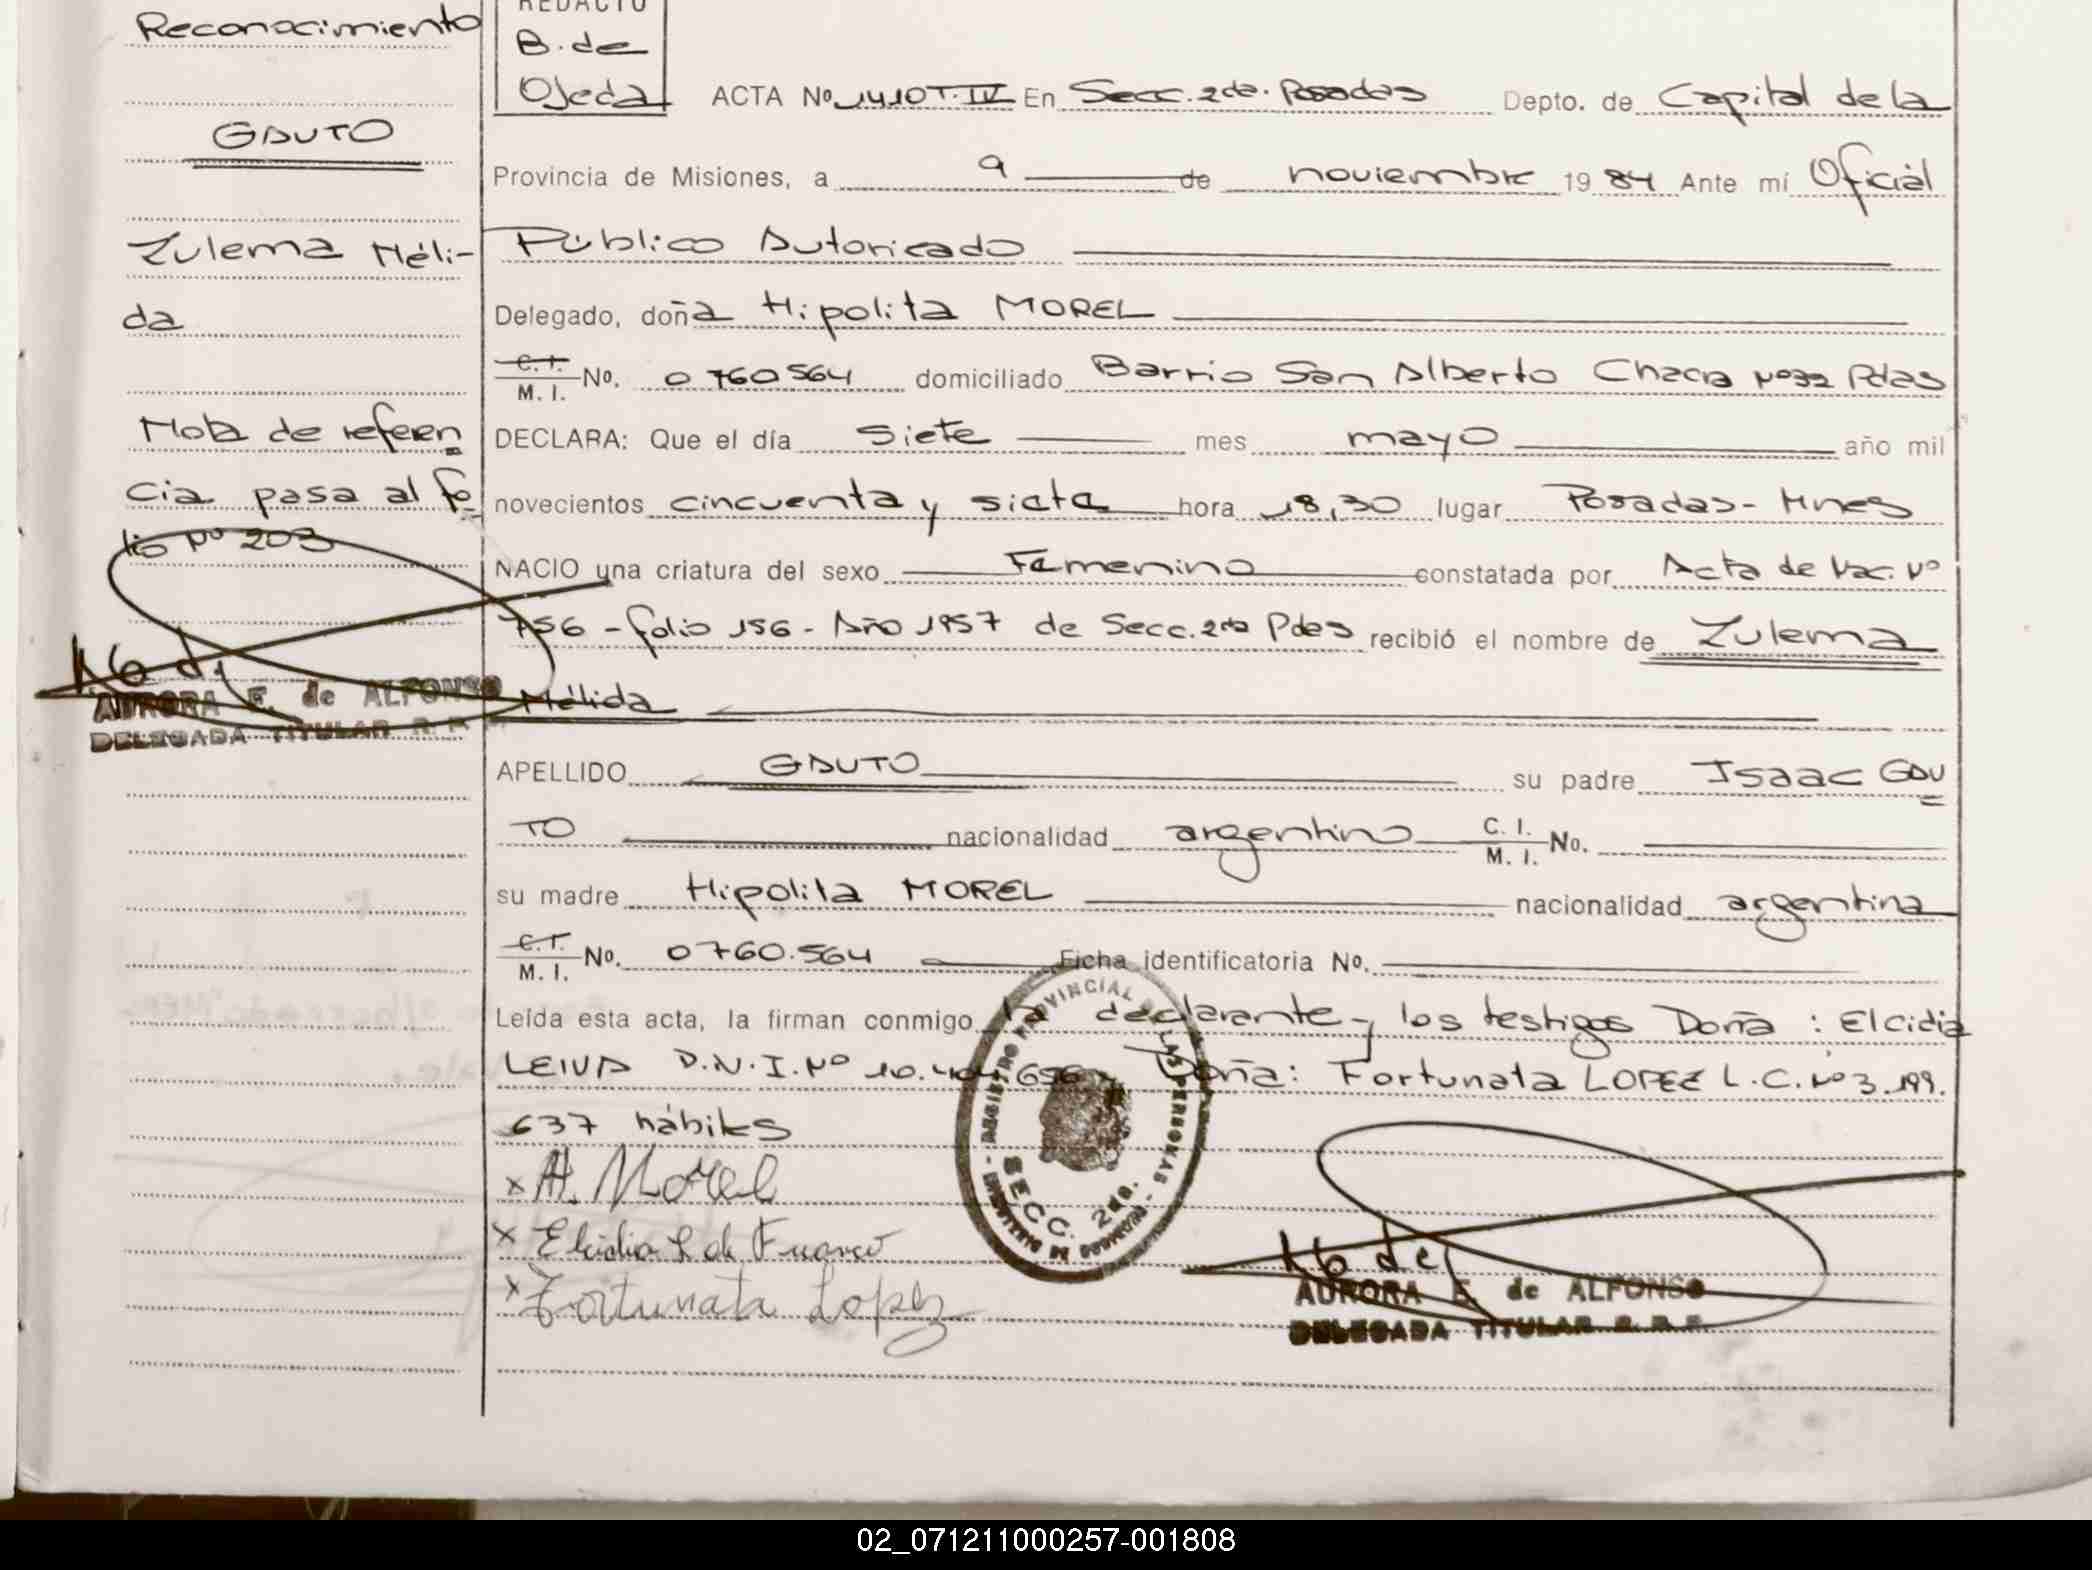 Reconocimiento
GAUTO
Zulema Néli-
da
Nota de referen
cia pasa al fo
lio Nº 203
AURORA E. de ALFONSO
DELEGADA TITULAR R. P. P.
REDACTO
B. de
Ojeda
ACTA Nº 1410 T. IV En Secc. 2da. Posadas Depto. de Capital de la
Provincia de Misiones, a 9 de noviembre 19 84 Ante mí Oficial
Público Autoricado
Delegado, doña Hipolita MOREL
C. I. M. I. No. 0760564 domiciliado Barrio San Alberto Chacra Nº32 Pdas
DECLARA: Que el día siete mes mayo año mil
novecientos cincuenta y siete hora 18,30 lugar Posadas - Mnes
NACIO una criatura del sexo Femenino constatada por Acta de Nac. Nº
756 - folio 156 - Año 1957 de Secc. 2da Pdas recibió el nombre de Zulema
Nélida
APELLIDO GAUTO su padre Isaac GAU
TO nacionalidad argentino C. I. M. I. No.
su madre Hipolita MOREL nacionalidad argentina
C. I. M. I. No. 0760.564 Ficha identificatoria No.
Leída esta acta, la firman conmigo la declarante y los testigos Doña : Elcidia
LEIVA D.N.I. Nº 10.404.656 y Doña: Fortunata LOPEZ L.C. Nº 3.199.
637 hábiles
x H. Morel
x Elcidia L de Franco
x Fortunata Lopez
REGISTRO PROVINCIAL DE LAS PERSONAS
SECC. 2da.
AURORA E. de ALFONSO
DELEGADA TITULAR R. P. P.
02_071211000257-001808